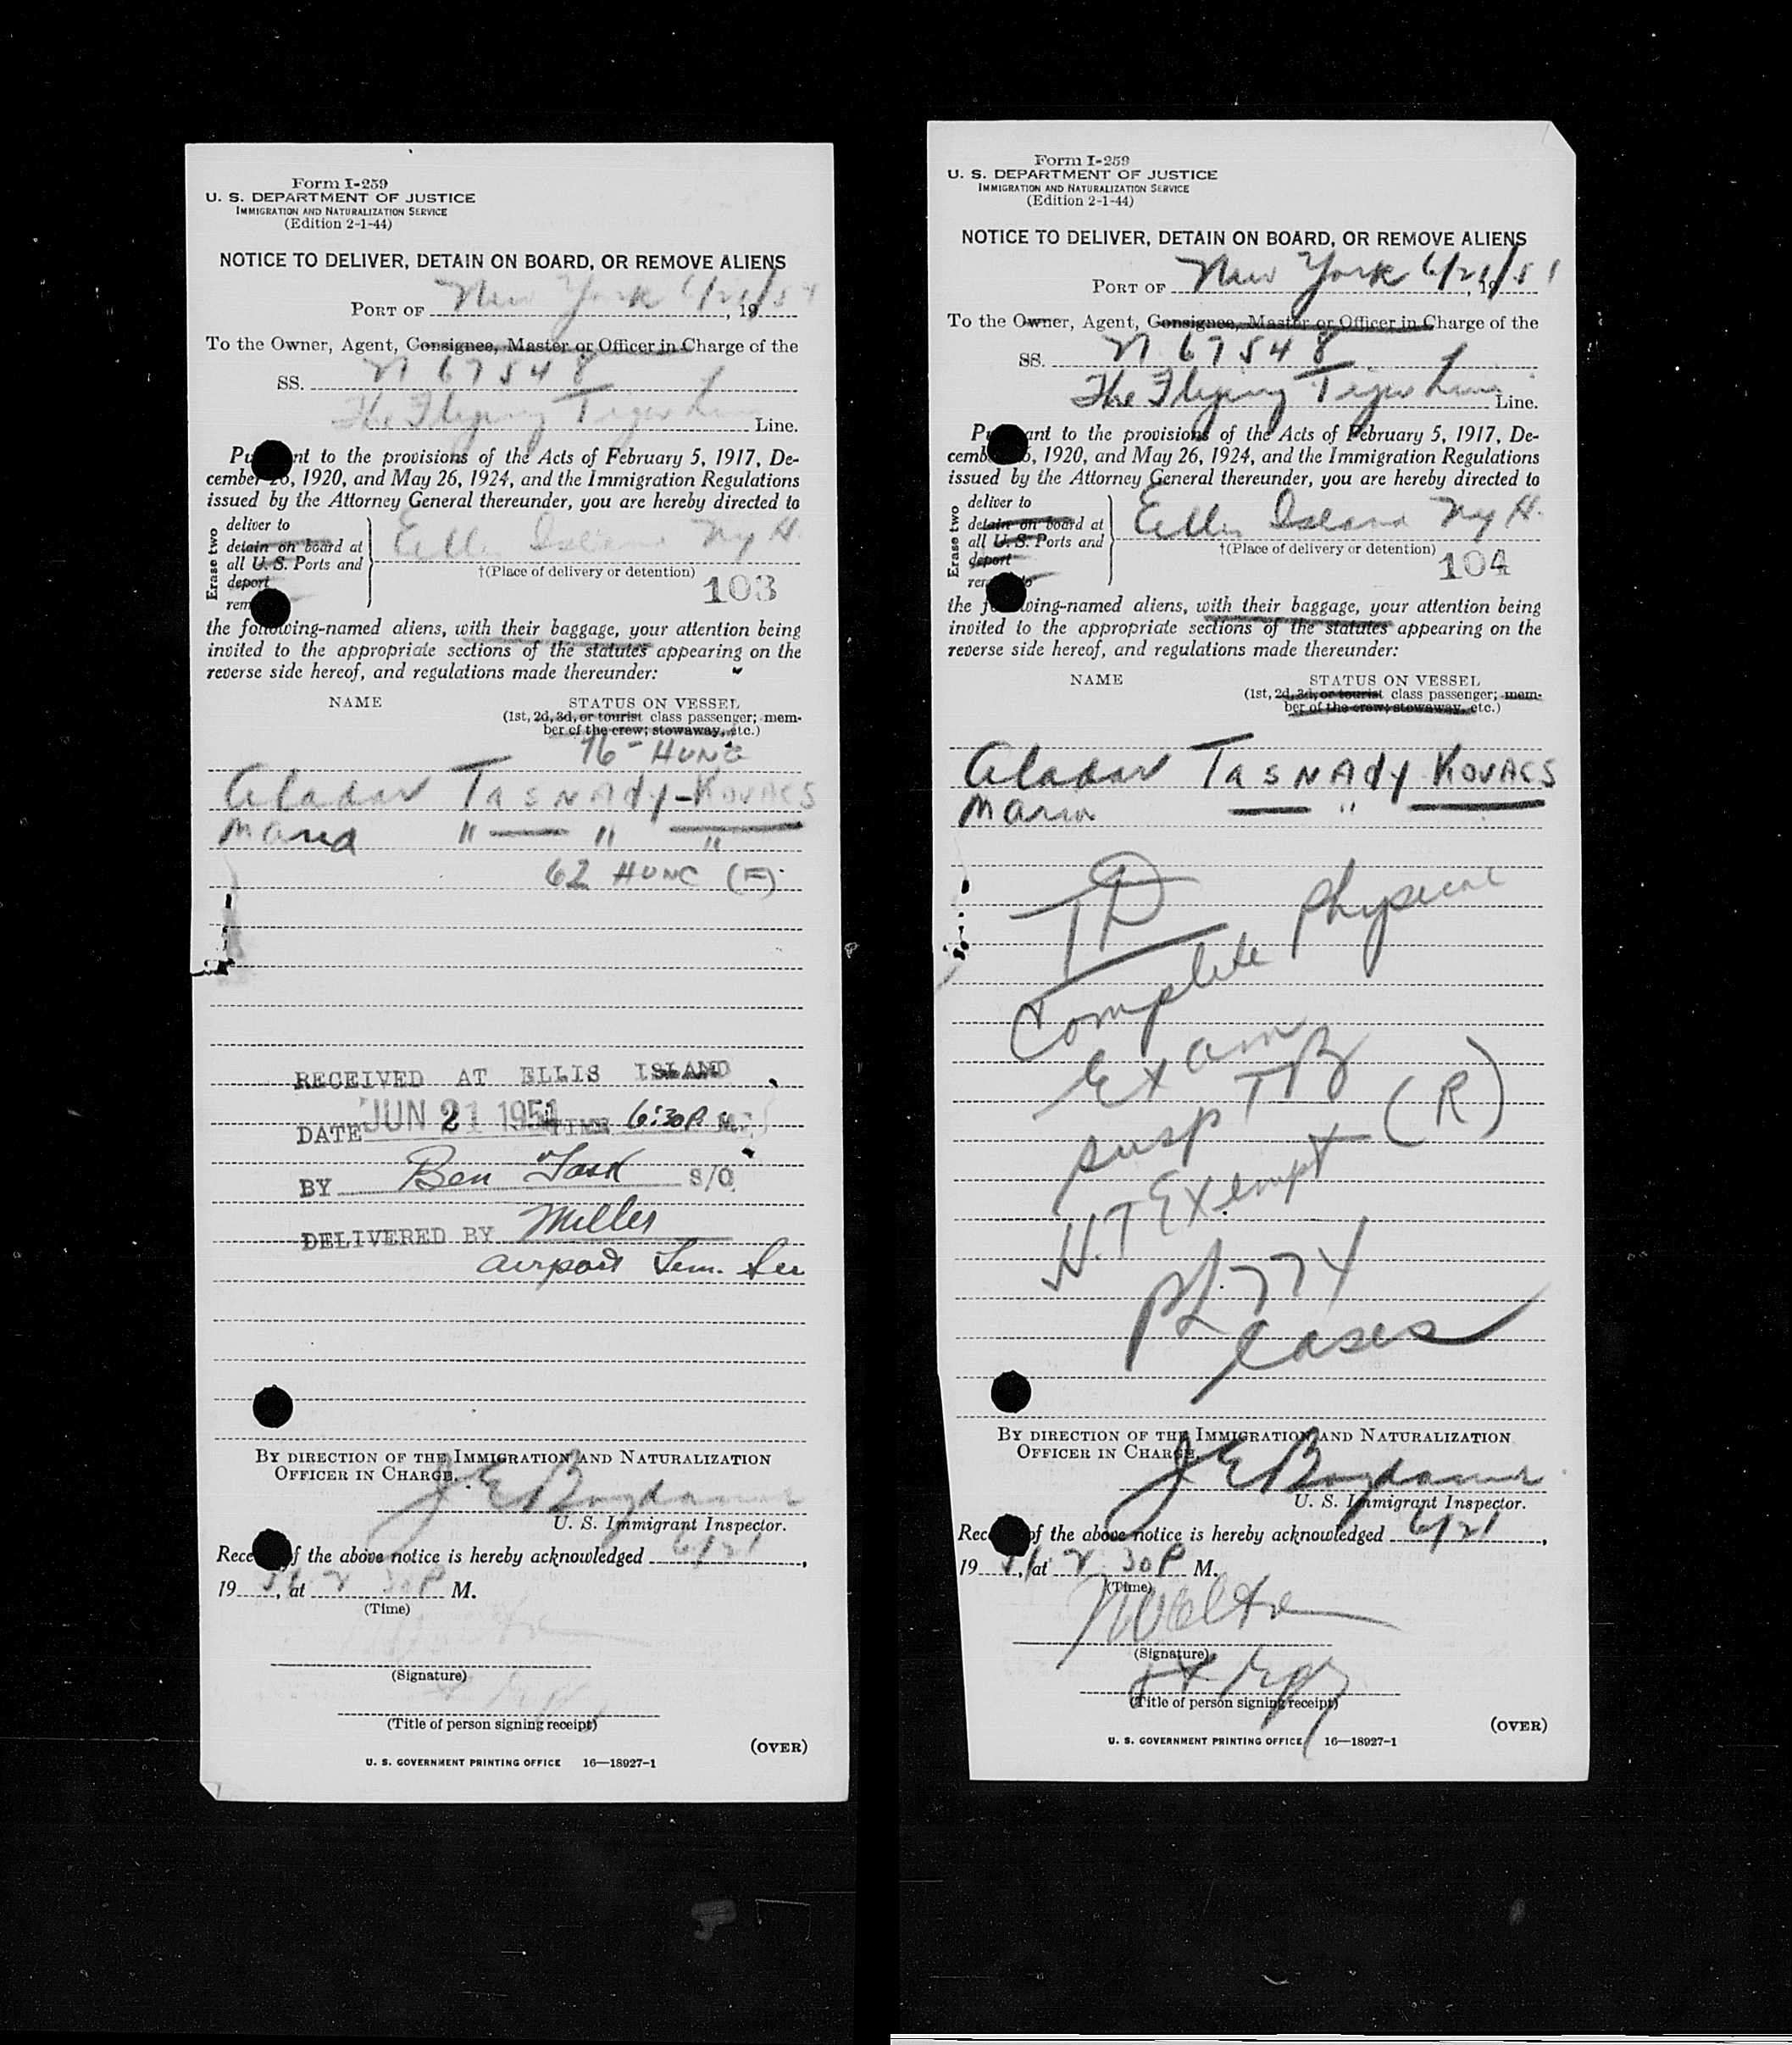 Form I-259
U. S. DEPARTMENT OF JUSTICE
IMMIGRATION AND NATURALIZATION SERVICE
(Edition 2-1-44)
NOTICE TO DELIVER, DETAIN ON BOARD, OR REMOVE ALIENS
PORT OF New York 6/21/51, 19
To the Owner, Agent, Consignee, Master or Officer in Charge of the
SS. N 67548
The Flying Tiger Line Line.
Pu nt to the provisions of the Acts of February 5, 1917, De-
cember 26, 1920, and May 26, 1924, and the Immigration Regulations
issued by the Attorney General thereunder, you are hereby directed to
Erase two
deliver to
detain on board at
all U. S. Ports and
deport
rem
Ellis Island NYH.
†(Place of delivery or detention)
103
the following-named aliens, with their baggage, your attention being
invited to the appropriate sections of the statutes appearing on the
reverse side hereof, and regulations made thereunder:
NAME STATUS ON VESSEL
(1st, 2d, 3d, or tourist class passenger; mem-
ber of the crew; stowaway, etc.)
76 - HUNG
Aladar TASNAdy-KOVACS
Maria " — " — "
62 HUNG (F)
RECEIVED AT ELLIS ISLAND
DATE JUN 21 1951 TIME 6:30 P. M.
BY Ben S/O
DELIVERED BY Miller
airport
BY DIRECTION OF THE IMMIGRATION AND NATURALIZATION
OFFICER IN CHARGE.
J E
U. S. Immigrant Inspector.
Rece f the above notice is hereby acknowledged 6/21,
19 51, at 2 30 P M.
(Time)
(Signature)
(Title of person signing receipt)
(OVER)
U. S. GOVERNMENT PRINTING OFFICE 16—18927-1
Form I-259
U. S. DEPARTMENT OF JUSTICE
IMMIGRATION AND NATURALIZATION SERVICE
(Edition 2-1-44)
NOTICE TO DELIVER, DETAIN ON BOARD, OR REMOVE ALIENS
PORT OF New York 6/21/51, 19
To the Owner, Agent, Consignee, Master or Officer in Charge of the
SS. N 67548
The Flying Tiger Line Line.
Pu ant to the provisions of the Acts of February 5, 1917, De-
cemb 6, 1920, and May 26, 1924, and the Immigration Regulations
issued by the Attorney General thereunder, you are hereby directed to
Erase two
deliver to
detain on board at
all U. S. Ports and
deport
rem to
Ellis Island NYH.
†(Place of delivery or detention)
104
the f wing-named aliens, with their baggage, your attention being
invited to the appropriate sections of the statutes appearing on the
reverse side hereof, and regulations made thereunder:
NAME STATUS ON VESSEL
(1st, 2d, 3d, or tourist class passenger; mem-
ber of the crew; stowaway, etc.)
Aladar TASNAdy KOVACS
Maria — " —
TD
Complete Physical
Exam
susp TB (R)
H.T Exempt
PL 774
Cases
BY DIRECTION OF THE IMMIGRATION AND NATURALIZATION
OFFICER IN CHARGE.
J E
U. S. Immigrant Inspector.
Rec of the above notice is hereby acknowledged 6/21,
19 51, at 2 30 P M.
(Time)
(Signature)
(Title of person signing receipt)
(OVER)
U. S. GOVERNMENT PRINTING OFFICE 16—18927-1